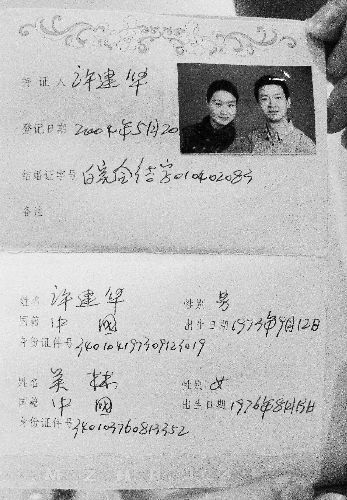 持证人 许建华
登记日期 2004年5月20
结婚证字号 皖合结字010402089
备注
姓名 许建华 性别 男
国籍 中國 出生日期 1973年9月12日
身份证件号 340104197309123019
姓名 吴 性别 女
国籍 中國 出生日期 1976年8月13日
身份证件号 340103760813352